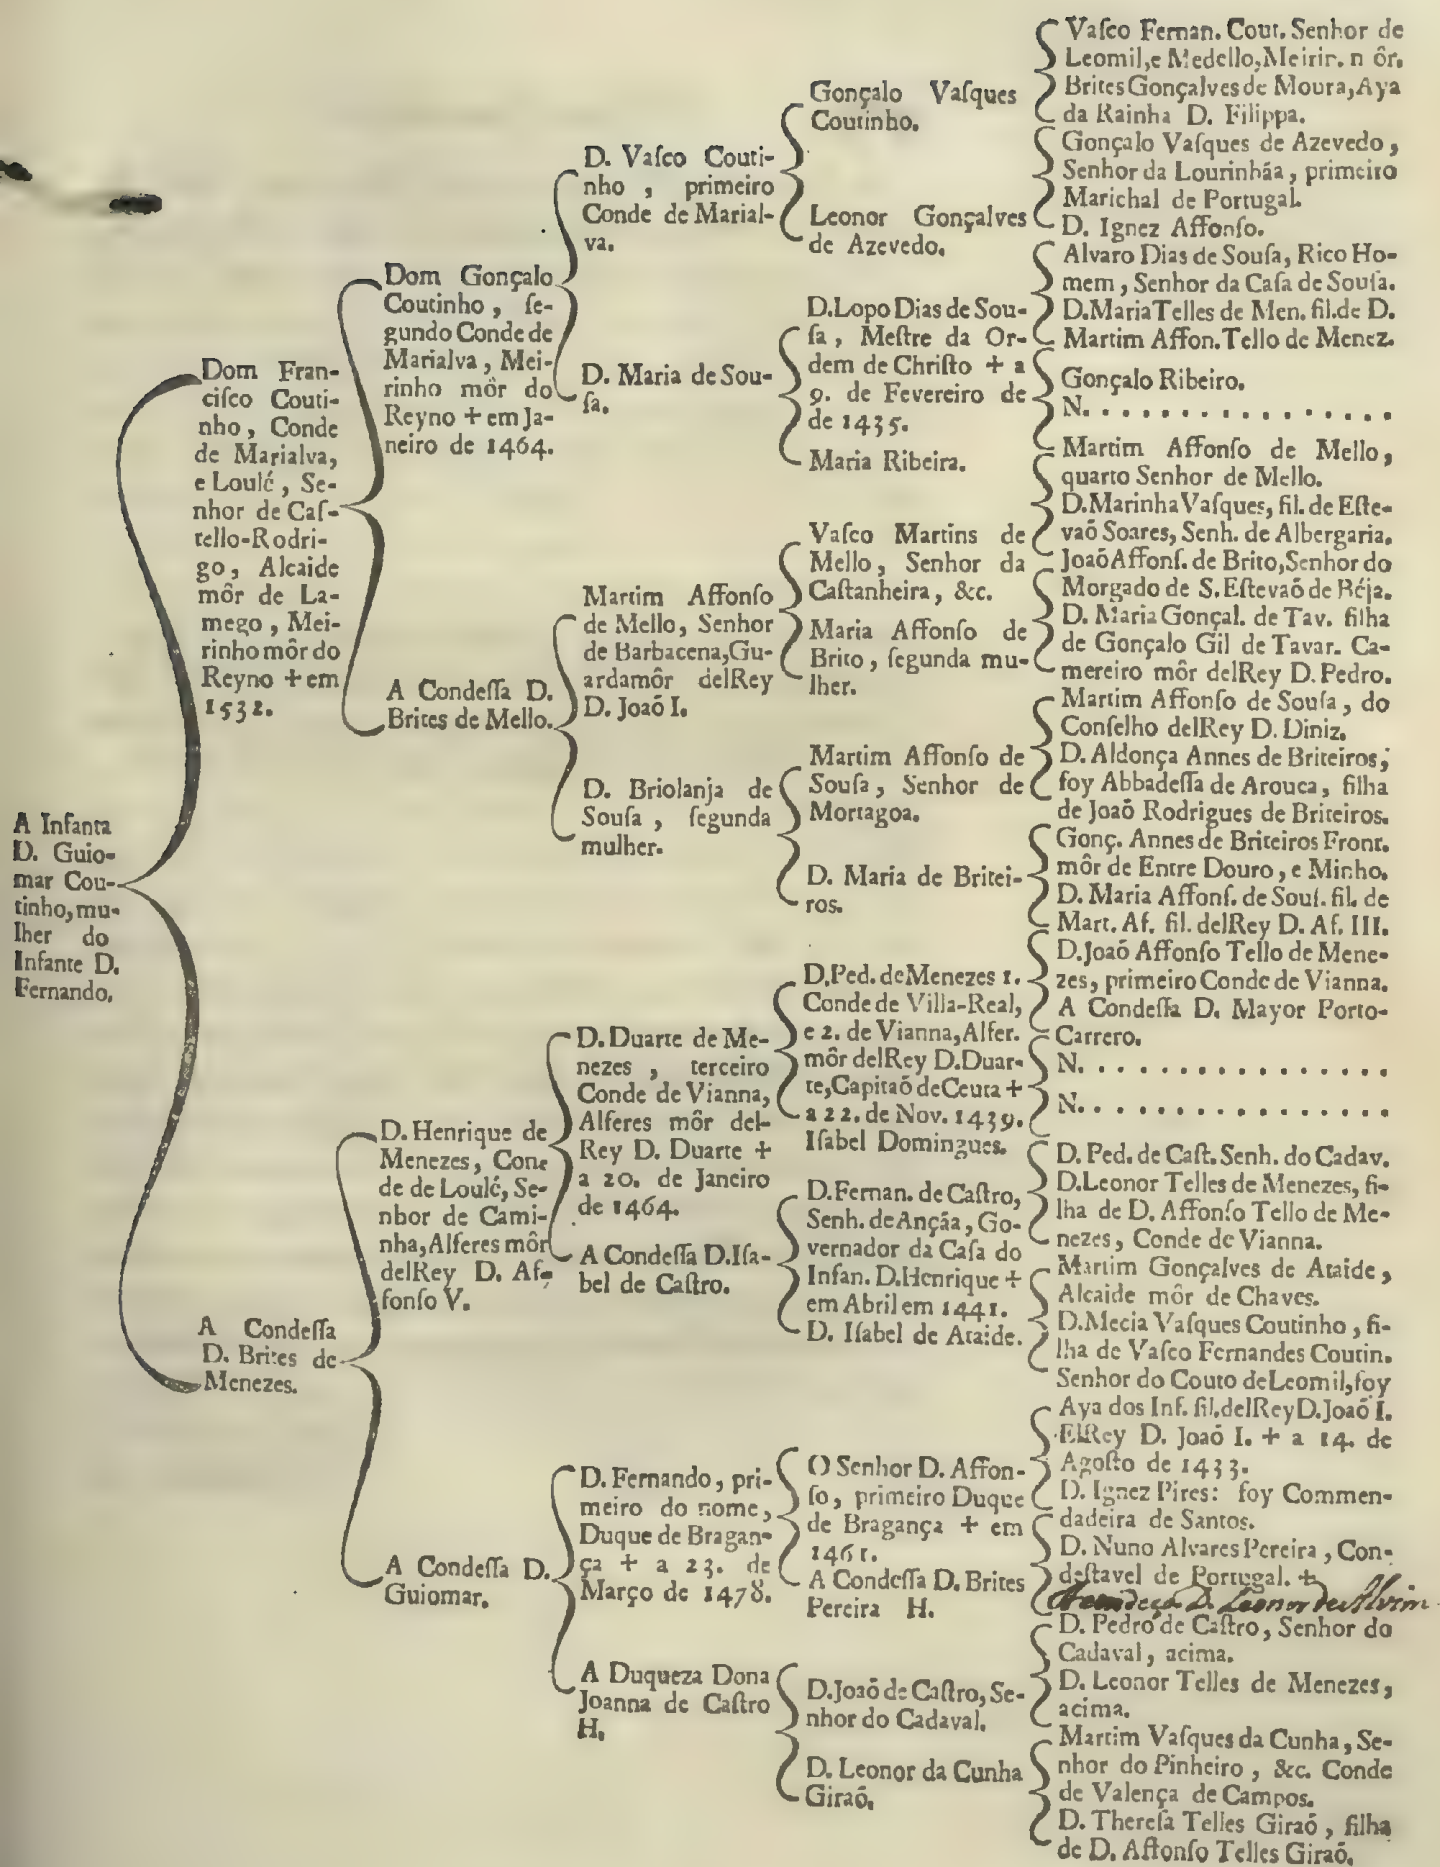 A Infanta
D. Guio-
mar Cou-
tinho, mu-
lher do
Infante D.
Fernando.
Dom Fran-
ciſco Couti-
nho, Conde
de Marialva,
e Loulé, Se-
nhor de Caſ-
tello-Rodri-
go, Alcaide
môr de La-
mego, Mei-
rinho môr do
Reyno + em
1532.
A Condeſſa
D. Brites de
Menezes.
Dom Gonçalo
Coutinho, ſe-
gundo Conde de
Marialva, Mei-
rinho môr do
Reyno + em Ja-
neiro de 1464.
A Condeſſa D.
Brites de Mello.
D. Henrique de
Menezes, Con-
de de Loulé, Se-
nhor de Cami-
nha, Alferes môr
delRey D. Af-
fonſo V.
A Condeſſa D.
Guiomar.
D. Vaſco Couti-
nho, primeiro
Conde de Marial-
va.
D. Maria de Sou-
ſa.
Martim Affonſo
de Mello, Senhor
de Barbacena, Gu-
ardamôr delRey
D. Joaõ I.
D. Briolanja de
Souſa, ſegunda
mulher.
D. Duarte de Me-
nezes, terceiro
Conde de Vianna,
Alferes môr del-
Rey D. Duarte +
a 20. de Janeiro
de 1464.
A Condeſſa D. Iſa-
bel de Caſtro.
D. Fernando, pri-
meiro do nome,
Duque de Bragan-
ça + a 23. de
Março de 1478.
A Duqueza Dona
Joanna de Caſtro
H.
Gonçalo Vaſques
Coutinho.
Leonor Gonçalves
de Azevedo.
D. Lopo Dias de Sou-
ſa, Meſtre da Or-
dem de Chriſto + a
9. de Fevereiro de
de 1435.
Maria Ribeira.
Vaſco Martins de
Mello, Senhor da
Caſtanheira, &c.
Maria Affonſo de
Brito, ſegunda mu-
lher.
Martim Affonſo de
Souſa, Senhor de
Mortagoa.
D. Maria de Britei-
ros.
D. Ped. de Menezes 1.
Conde de Villa-Real,
e 2. de Vianna, Alfer.
môr delRey D. Duar-
te, Capitaõ de Ceuta +
a 22. de Nov. 1439.
Iſabel Domingues.
D. Fernan. de Caſtro,
Senh. de Ançáa, Go-
vernador da Caſa do
Infan. D. Henrique +
em Abril em 1441.
D. Iſabel de Ataide.
O Senhor D. Affon-
ſo, primeiro Duque
de Bragança + em
1461.
A Condeſſa D. Brites
Pereira H.
D. Joaõ de Caſtro, Se-
nhor do Cadaval.
D. Leonor da Cunha
Giraõ.
Vaſco Fernan. Cout. Senhor de
Leomil, e Medello, Meirin. môr.
Brites Gonçalves de Moura, Aya
da Rainha D. Filippa.
Gonçalo Vaſques de Azevedo,
Senhor da Lourinháa, primeiro
Marichal de Portugal.
D. Ignez Affonſo.
Alvaro Dias de Souſa, Rico Ho-
mem, Senhor da Caſa de Souſa.
D. Maria Telles de Men. fil. de D.
Martim Affon. Tello de Menez.
Gonçalo Ribeiro.
N. . . . . . . . . . . . . . . .
Martim Affonſo de Mello,
quarto Senhor de Mello.
D. Marinha Vaſques, fil. de Eſte-
vaõ Soares, Senh. de Albergaria.
Joaõ Affonſ. de Brito, Senhor do
Morgado de S. Eſtevaõ de Béja.
D. Maria Gonçal. de Tav. filha
de Gonçalo Gil de Tavar. Ca-
mereiro môr delRey D. Pedro.
Martim Affonſo de Souſa, do
Conſelho delRey D. Diniz.
D. Aldonça Annes de Briteiros,
foy Abbadeſſa de Arouca, filha
de Joaõ Rodrigues de Briteiros.
Gonç. Annes de Briteiros Front.
môr de Entre Douro, e Minho.
D. Maria Affonſ. de Souſ. fil. de
Mart. Af. fil. delRey D. Af. III.
D. Joaõ Affonſo Tello de Mene-
zes, primeiro Conde de Vianna.
A Condeſſa D. Mayor Porto-
Carrero.
N. . . . . . . . . . . . . . . .
N. . . . . . . . . . . . . . . .
D. Ped. de Caſt. Senh. do Cadav.
D. Leonor Telles de Menezes, fi-
lha de D. Affonſo Tello de Me-
nezes, Conde de Vianna.
Martim Gonçalves de Ataide,
Alcaide môr de Chaves.
D. Mecia Vaſques Coutinho, fi-
lha de Vaſco Fernandes Coutin.
Senhor do Couto de Leomil, foy
Aya dos Inf. fil. delRey D. Joaõ I.
ElRey D. Joaõ I. + a 14. de
Agoſto de 1433.
D. Ignez Pires: foy Commen-
dadeira de Santos.
D. Nuno Alvares Pereira, Con-
deſtavel de Portugal. +
A condeça D. Leonor de Alvim
D. Pedro de Caſtro, Senhor do
Cadaval, acima.
D. Leonor Telles de Menezes,
acima.
Martim Vaſques da Cunha, Se-
nhor do Pinheiro, &c. Conde
de Valença de Campos.
D. Thereſa Telles Giraõ, filha
de D. Affonſo Telles Giraõ.